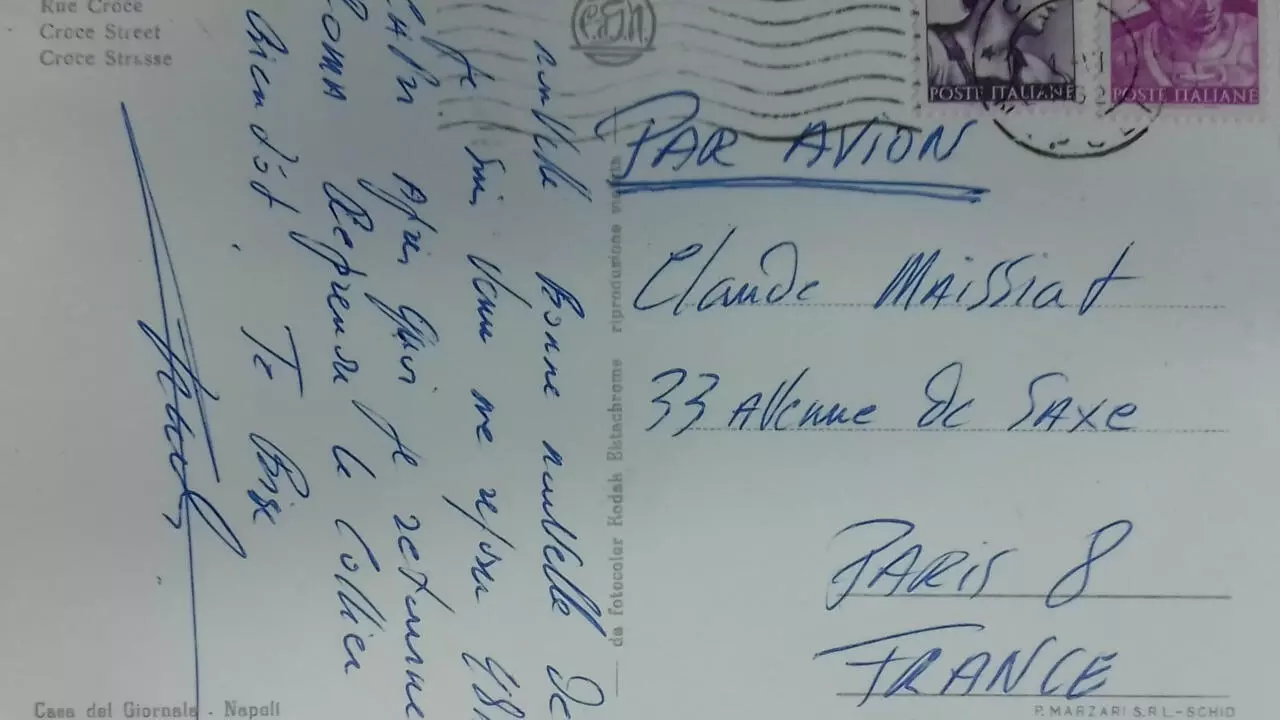 Rue Croce
Croce Street
Croce Strasse
C.D.G.N.
POSTE ITALIANE
POSTE ITALIANE
PAR AVION
Claude MAissiat
33 AVenue De SAXe
PARiS 8
FRANCE
nouvelle Bonne nouvelle De
Je Suis Venu me reposer 48h
CAPRI Après Quoi Je retourne
ROMA Reprendre le Collier
Bien à toi . Te Bise
da fotocolor Kodak Ektachrome riproduzione vietata
Casa del Giornale - Napoli
P. MARZARI S.R.L. - SCHIO